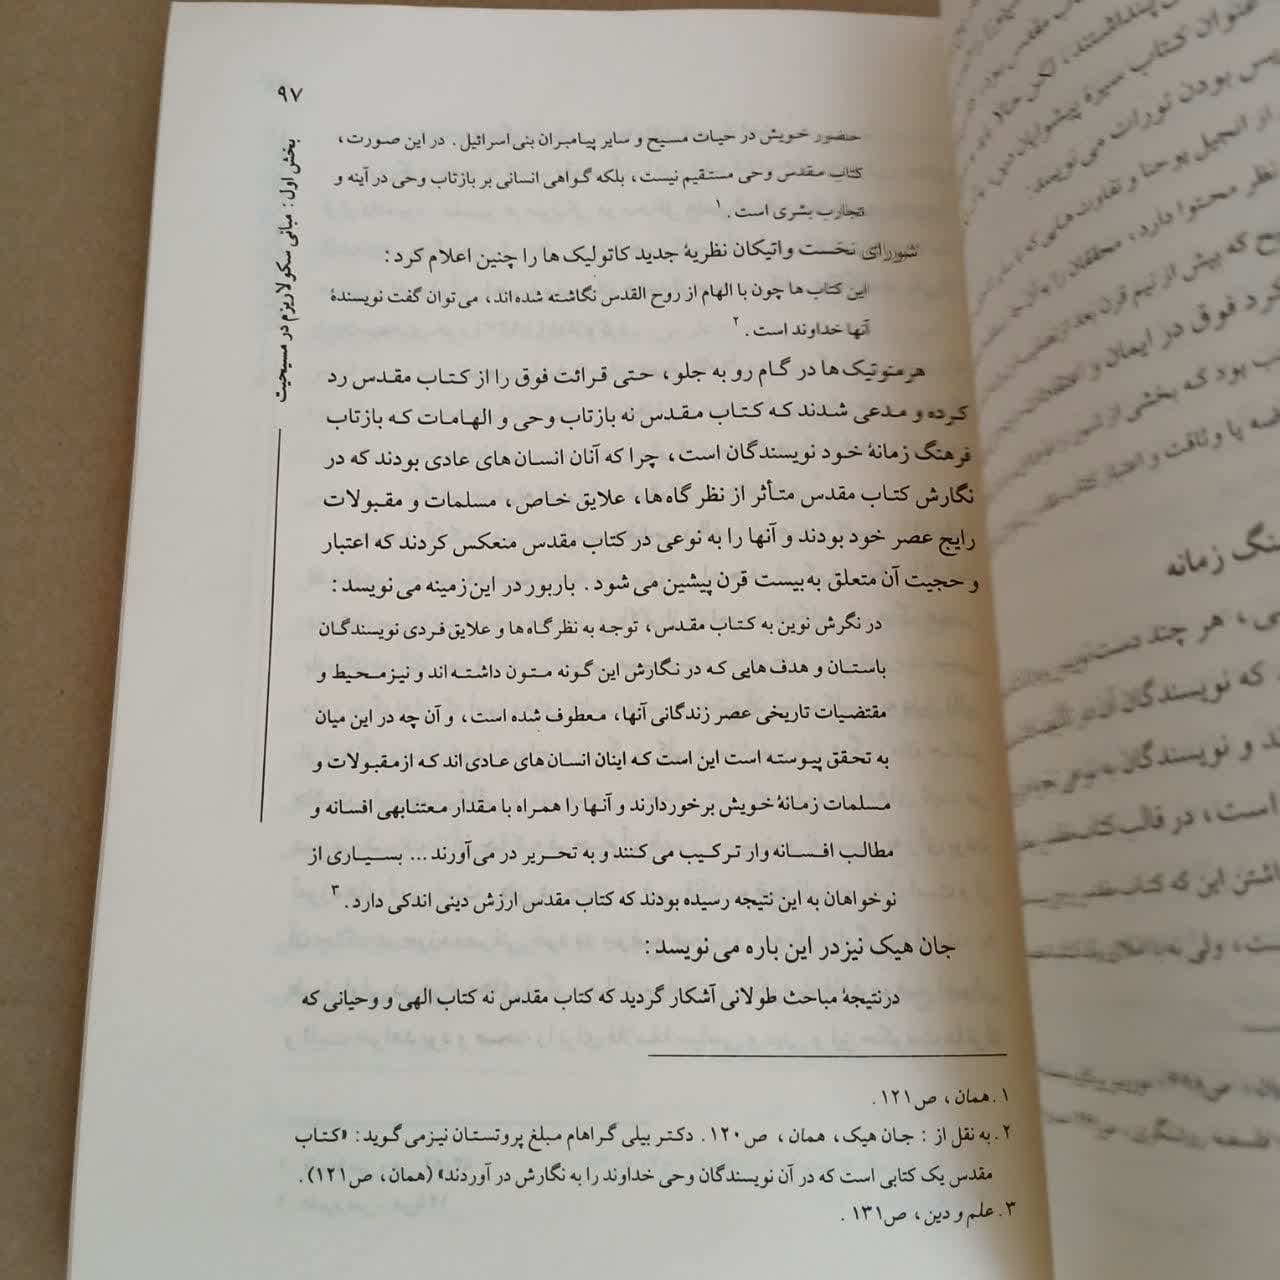 ۹۷
بخش اول: مبانی سکولاریزم در مسیحیت
حضور خویش در حیات مسیح و سایر پیامبران بنی اسرائیل. در این صورت،
کتاب مقدس وحی مستقیم نیست، بلکه گواهی انسانی بر بازتاب وحی در آینه و
تجارب بشری است.۱
شورای نخست واتیکان نظریهٔ جدید کاتولیک ها را چنین اعلام کرد:
این کتاب ها چون با الهام از روح القدس نگاشته شده اند، می توان گفت نویسندهٔ
آنها خداوند است.۲
هرمنوتیک ها در گام رو به جلو، حتی قرائت فوق را از کتاب مقدس رد
کرده و مدعی شدند که کتاب مقدس نه بازتاب وحی و الهامات که بازتاب
فرهنگ زمانهٔ خود نویسندگان است، چرا که آنان انسان های عادی بودند که در
نگارش کتاب مقدس متأثر از نظر گاه ها، علایق خاص، مسلمات و مقبولات
رایج عصر خود بودند و آنها را به نوعی در کتاب مقدس منعکس کردند که اعتبار
و حجیت آن متعلق به بیست قرن پیشین می شود. باربور در این زمینه می نویسد:
در نگرش نوین به کتاب مقدس، توجه به نظر گاه ها و علایق فردی نویسندگان
باستان و هدف هایی که در نگارش این گونه متون داشته اند و نیز محیط و
مقتضیات تاریخی عصر زندگانی آنها، معطوف شده است، و آن چه در این میان
به تحقق پیوسته است این است که اینان انسان های عادی اند که از مقبولات و
مسلمات زمانهٔ خویش برخوردارند و آنها را همراه با مقدار معتنابهی افسانه و
مطالب افسانه وار ترکیب می کنند و به تحریر در می آورند... بسیاری از
نوخواهان به این نتیجه رسیده بودند که کتاب مقدس ارزش دینی اندکی دارد.۳
جان هیک نیز در این باره می نویسد:
در نتیجهٔ مباحث طولانی آشکار گردید که کتاب مقدس نه کتاب الهی و وحیانی که
۱. همان، ص۱۲۱.
۲. به نقل از: جان هیک، همان، ص۱۲۰. دکتر بیلی گراهام مبلغ پروتستان نیز می گوید: «کتاب
مقدس یک کتابی است که در آن نویسندگان وحی خداوند را به نگارش در آوردند» (همان، ص۱۲۱).
۳. علم و دین، ص۱۳۱.
عنوان کتاب سیرهٔ پیشوایان
بودن تورات می نویسد:
از انجیل یوحنا و تفاوت هایی که
نظر محتوا دارد، محققان را
که بیش از نیم قرن بعد از
فوق در ایمان و
بود که بخشی از
یا وثاقت و اعتبار کتاب
زمانه
هر چند دست نویس
که نویسندگان آن
و نویسندگان به نوعی
است، در قالب کتاب
این که کتاب
ولی نه به